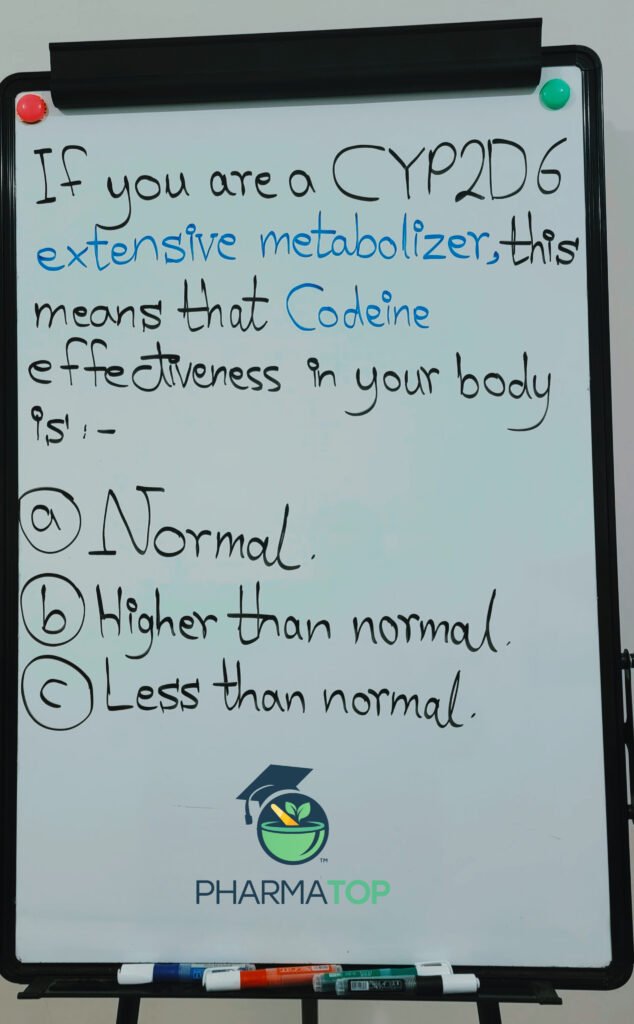 If you are a CYP2D6
extensive metabolizer, this
means that Codeine
effectiveness in your body
is :-
a Normal.
b Higher than normal.
c Less than normal.
TM
PHARMATOP